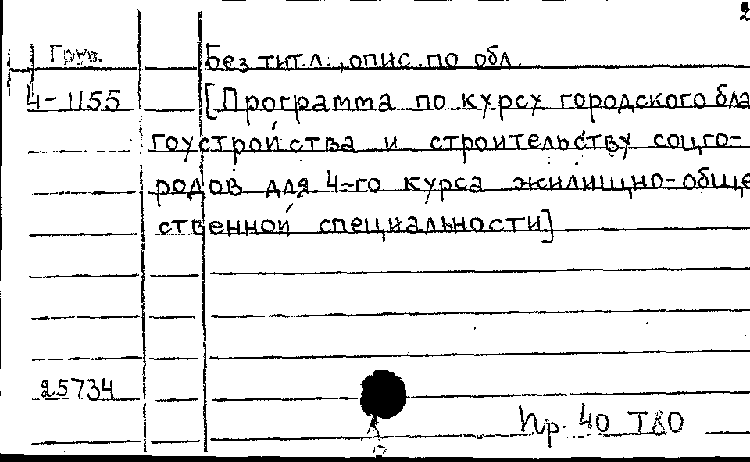 2
Груз. Без тит.л., опис. по обл.
Ч-1155 [Программа по курсу городского бла
гоустройства и строительству соцго-
родов для 4-го курса жилищно-обще
ственной специальности]
25734
Пр. 40 Т80